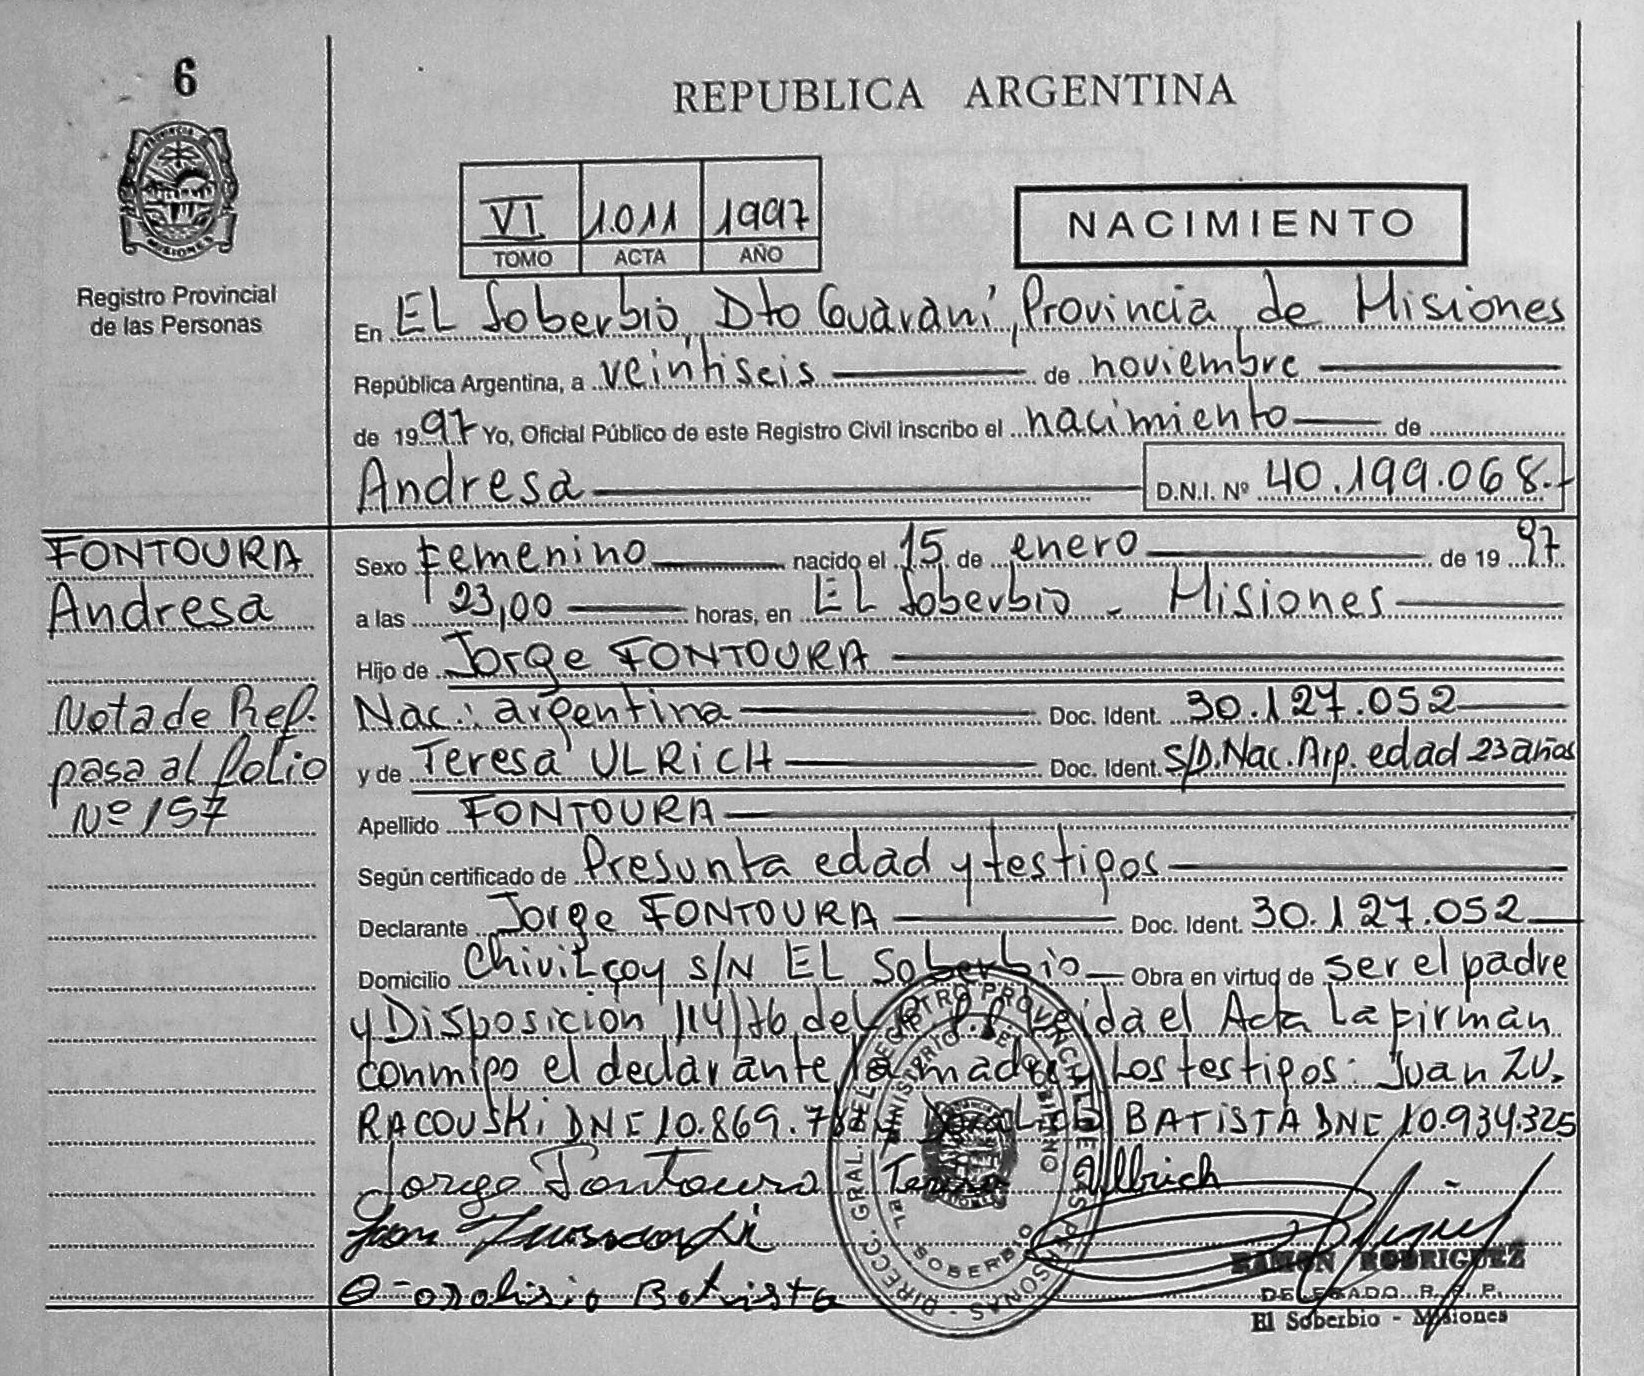 6
PROVINCIA
MISIONES
Registro Provincial
de las Personas
REPUBLICA ARGENTINA
VI 1.011 1997
TOMO ACTA AÑO
NACIMIENTO
En EL Soberbio, Dto Guaraní, Provincia de Misiones
República Argentina, a veintiseis de noviembre
de 1997 Yo, Oficial Público de este Registro Civil inscribo el nacimiento de
Andresa D.N.I. Nº 40.199.068.-
FONTOURA
Andresa
Nota de Ref.
pasa al folio
Nº 157
Sexo femenino nacido el 15 de enero de 1997
a las 23,00 horas, en EL Soberbio - Misiones
Hijo de Jorge FONTOURA
Nac.: argentina Doc. Ident. 30.127.052
y de Teresa ULRICH Doc. Ident. S/D. Nac. Arg. edad 23 años
Apellido FONTOURA
Según certificado de Presunta edad y testigos
Declarante Jorge FONTOURA Doc. Ident. 30.127.052
Domicilio Chivilcoy S/N EL Soberbio Obra en virtud de ser el padre
y Disposición 114/76 del R.P.P. Leida el Acta La firman
conmigo el declarante, la madre y Los testigos: Juan ZU-
RACOUSKI DNI 10.869. BATISTA DNI 10.934.325
Jorge Fontoura Teresa Ullrich
Juan
Batista
DIRECC. GRAL. DEL REGISTRO PROVINCIAL DE LAS PERSONAS
MINISTERIO DE GOBIERNO
EL SOBERBIO
RAMON RODRIGUEZ
DELEGADO R. P. P.
El Soberbio - Misiones